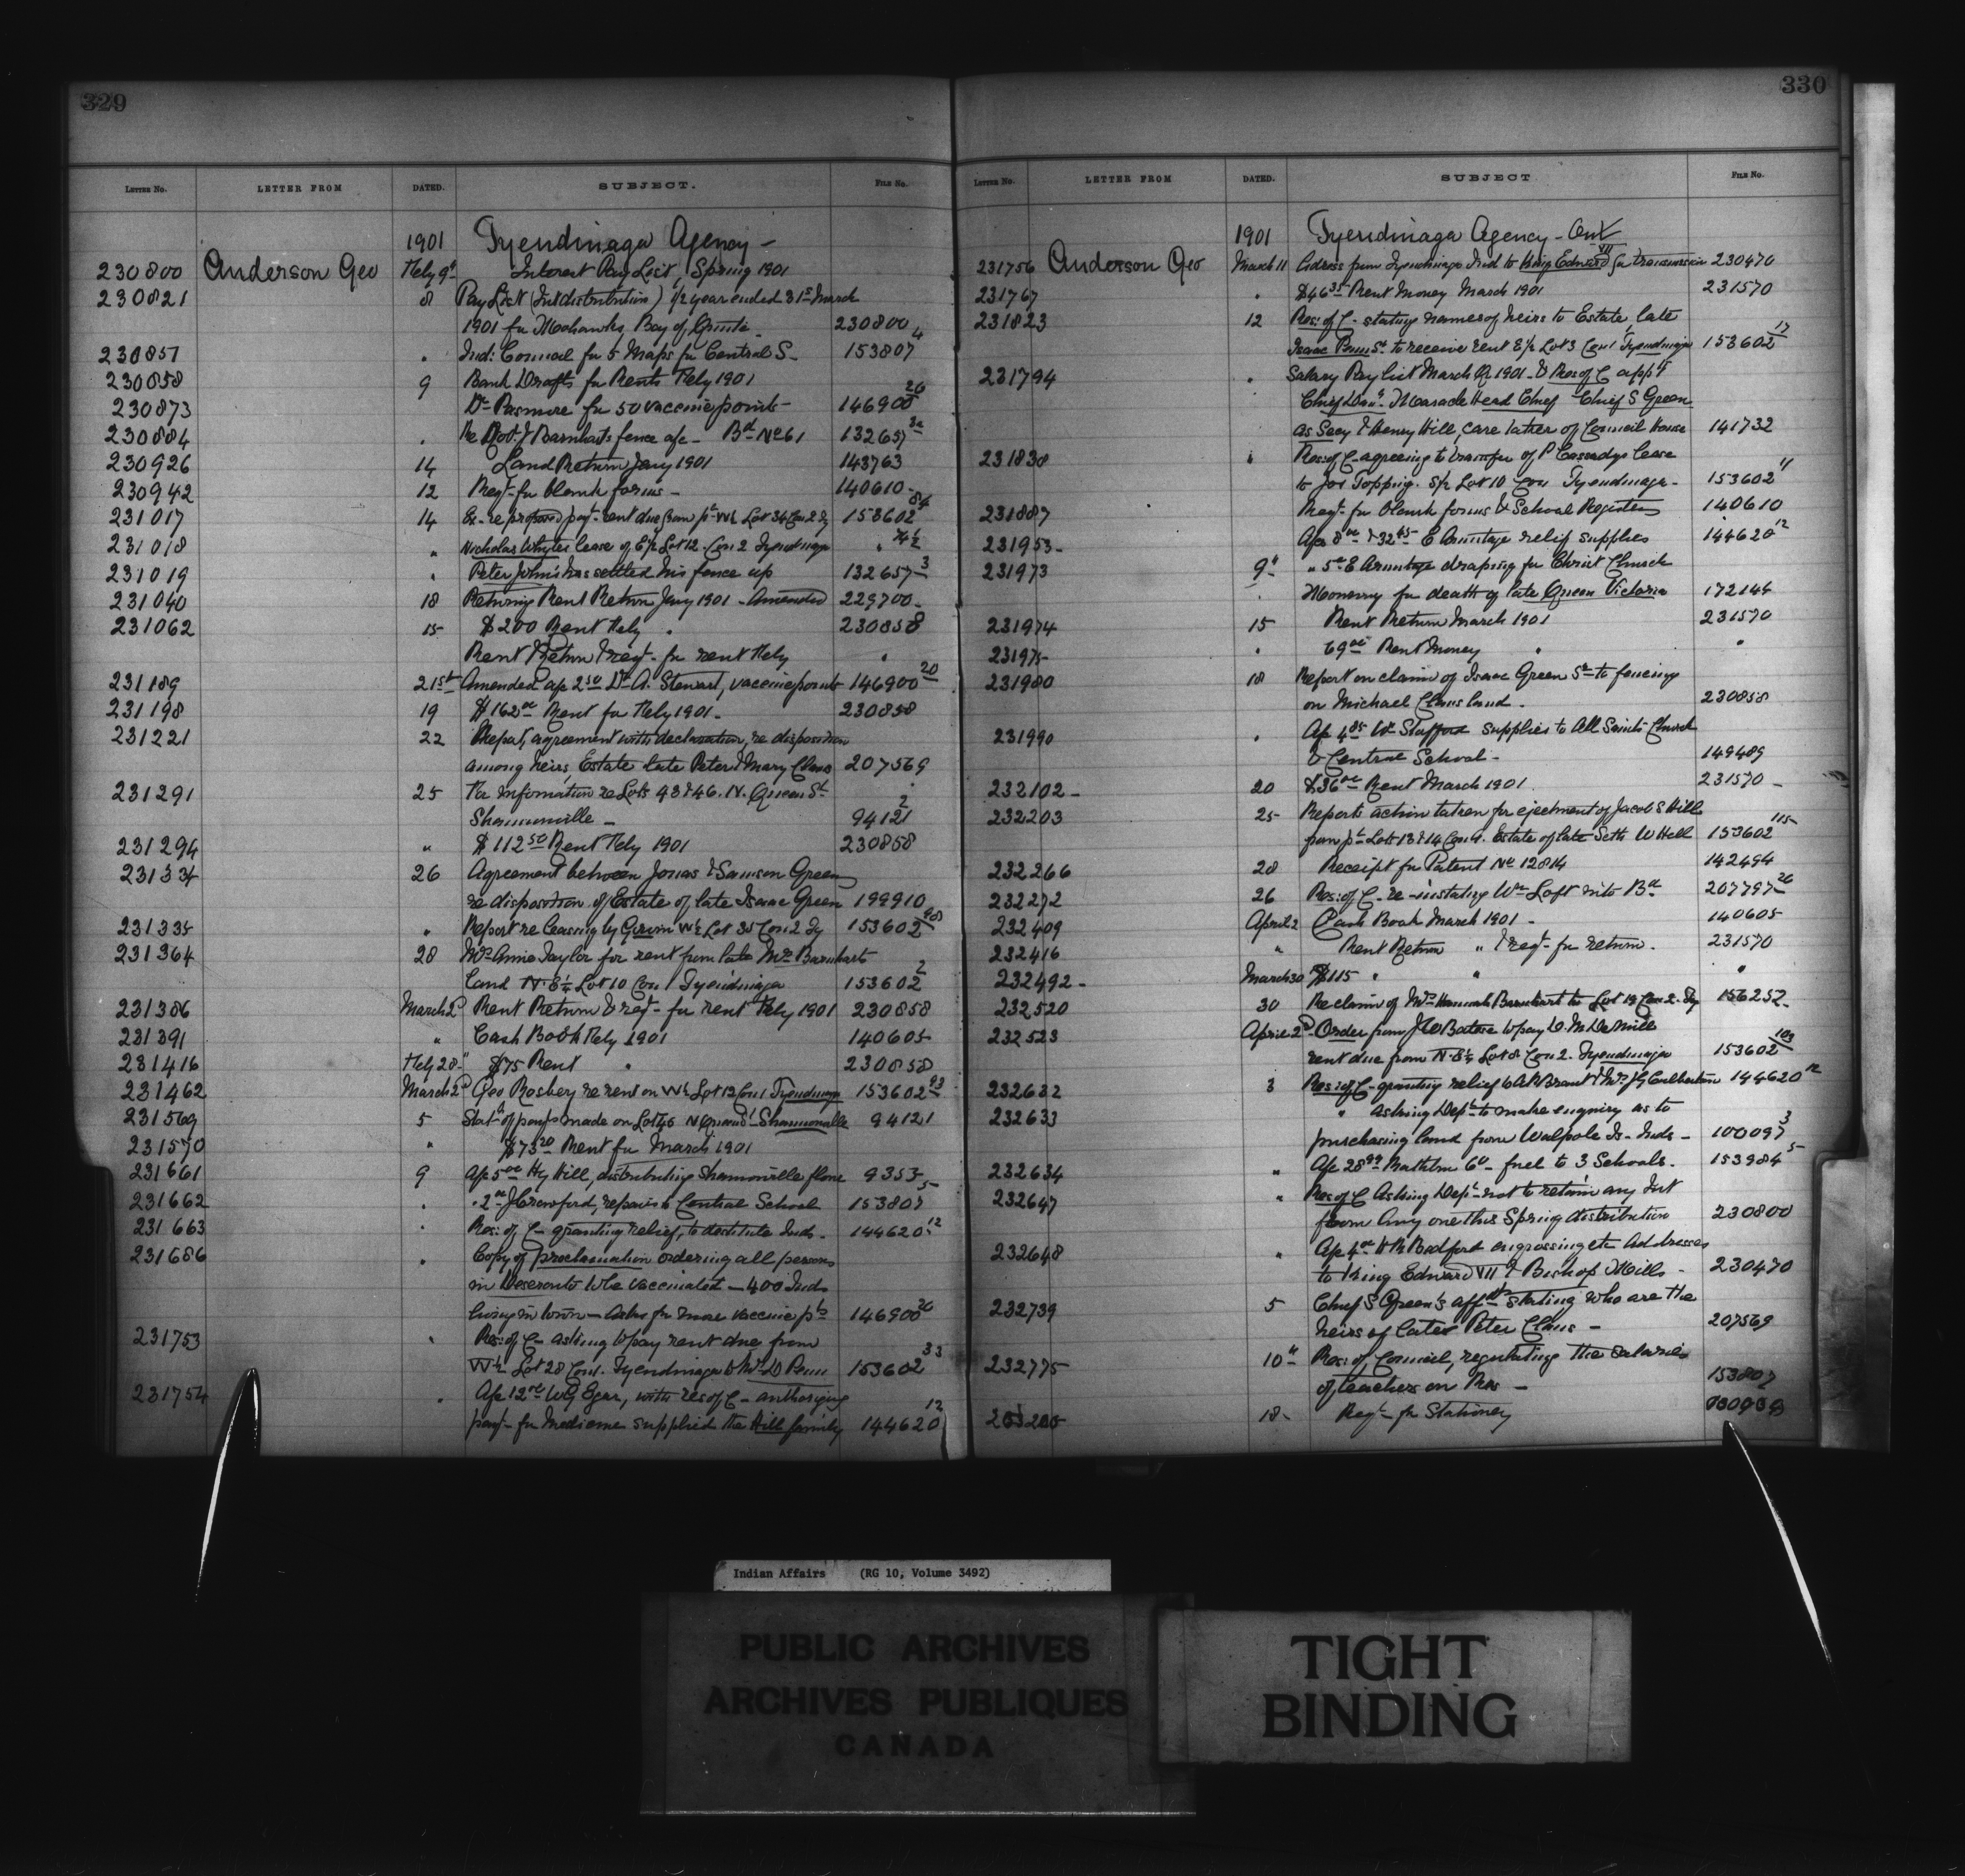 329
LETTER NO. LETTER FROM DATED. SUBJECT. FILE NO.
1901 Tyendinaga Agency -
230800 Anderson Geo Feby 9th Interest Pay List, Spring 1901
230821 8 Pay List (Int distribution) 1/2 year ended 31st March
1901 for Mohawks, Bay of Quinte - 230800
230857 " Ind: Council for 5 Maps for Central S- 153807 4
230858 9 Bank Drafts for Rents Feby 1901
230873 Dr Pasmore for 50 vaccine points - 146900 20
230884 " Re Robt J Barnharts fence a/c - Bd No 61 132657
230926 14 Land Return Jany 1901 143763
230942 12 Reqt- for blank forms - 140610-
231017 14 Ex- re proposed payt- rent due from pt W½ Lot 34 Con 2 Ty 153602 84
231018 " Nicholas Whytes lease of E½ Lot 12 Con 2 Tyendinaga " 74½
231019 " Peter John has settled his fence up 132657 3
231040 18 Returning Rent Return Jany 1901 - Amended 229700-
231062 15 $200 Rent Feby " 230858
Rent Return & reqt- for rent Feby "
231189 21st Amended a/c 2 50 Dr A. Stewart, vaccine points 146900 20
231198 19 $162 00 Rent for Feby 1901- 230858
231221 22 Report, agreement with declaration, re disposition
among heirs, Estate late Peter & Mary Claus 207569
231291 25 For information re Lots 43 & 46. N. Queen St
Shannonville - 94121 2
231294 " $112 50 Rent Feby 1901 230858
231334 26 Agreement between Jonas & Samson Green
re disposition of Estate of late Isaac Green 199910
231335 " Report re leasing by W½ Lot 35 Con 2 Ty 153602
231364 28 Mrs Annie Taylor for rent from late Mrs Barnharts
land N.E¼ Lot 10 Con 1 Tyendinaga 153602 2
231386 March 2d Rent Return & reqt- for rent Feby 1901 230858
231391 " Cash Book Feby 1901 140605-
231416 Feby 28" $75 Rent " 230858
231462 March 2d Geo Rosbey re rent on W½ Lot 12 Con 1 Tyendinaga 153602 93
231569 5 Statt of payts made on Lot 46 N Queen St Shannonville 94121
231570 " $73 20 Rent for March 1901
231661 9 A/c 5 00 Hy Hill, distributing Shannonville flour 9353-
231662 " " 2 00 J Crawford, repairs to Central School 153807 5
231663 " Res: of C- granting relief, to destitute Inds- 144620 12
231686 " Copy of proclamation ordering all persons
in Deseronto to be vaccinated - 400 Inds
living in town - asks for more vaccine pts 146900 20
231753 " Res: of C- asking to pay rent due from
W½ Lot 28 Con 1. Tyendinaga to Mrs D Penn 153602 33
231754 " A/c 12 00 W G Egar, with res of C- authorizing
payt- for medicine supplied the Hill family 144620 12
330
LETTER NO. LETTER FROM DATED. SUBJECT FILE NO.
1901 Tyendinaga Agency - Cont
231756 Anderson Geo March 11 Address from Tyendinaga Ind to King Edward VII for transmission 230470
231767 " $46 35 Rent Money March 1901 231570
231823 12 Res: of C- stating names of heirs to Estate, late
Isaac Penn Sr. to receive rent E½ Lot 3 Con 1 Tyendinaga 153602 17
231794 " Salary Pay list March Qr 1901- & Res of C appt
Chief Maracle Head Chief Chief S Green
as Secy & Henry Hill, care taker of Council House 141732
231838 " Res: of C- agreeing to transfer of P Cassadys lease
to Jos Topping. S½ Lot 10 Con 1 Tyendinaga- 153602 4
231887 Reqt- for blank forms & School Registers 140610
231953- A/cs 8 00 & 32 65 E Armitage relief supplies 144620 12
231973 9th " 5 00 E Armitage draping for Christ Church
Memory for death of late Queen Victoria 172144
231974 15 Rent Return March 1901 231570
231975- " 69 00 Rent Money " "
231980 18 Report on claim of Isaac Green Sr to fencing
on Michael Claus land - 230858
231990 " A/c 4 85 W Stafford supplies to All Saints Church
& Central School - 149489
232102- 20 $36 00 Rent March 1901. 231570 -
232203 25- Reports action taken for ejectment of Jacob S Hill
from pt Lots 13 & 14 Con 4. Estate of late Seth W Hill 153602 115
232266 28 Receipt for Patent No 12814 142494
232272 26 Res: of C- re-instating Wm Loft into Bd 207797 26
232409 April 2 Cash Book March 1901 - 140605-
232416 " Rent Return " & reqt- for return. 231570
232492- March 30 $115 " " "
232520 30 Re claim of Mrs Hannah Barnhart to Lot 19 Con 2. Ty 156252-
232523 April 2d Order from to pay D. McDeMille
rent due from N.E¼ Lot 8 Con 2. Tyendinaga 153602 103
232632 3 Res: of C- granting relief to A R Brant & Mrs J G Culbertson 144620 12
232633 " asking Dept- to make enquiry as to
purchasing land from Walpole Is- Inds- 100097 3
232634 " A/c 28 99 Rathbun Co- fuel to 3 Schools. 153984 5
232647 " Res of C Asking Dept- not to retain any Int
from Any one this Spring distribution 230800
232648 " A/c 4 00 H R Bedford engrossing etc Addresses
to King Edward VII & Bishop Mills - 230470
232739 5 Chief S Green's affdts stating who are the
heirs of late Peter Claus - 207569
232775- 10th Res: of Council, regulating the salaries
of teachers on Res - 153807
18- Reqt- for Stationery
Indian Affairs (RG 10, Volume 3492)
PUBLIC ARCHIVES
ARCHIVES PUBLIQUES
CANADA
TIGHT
BINDING